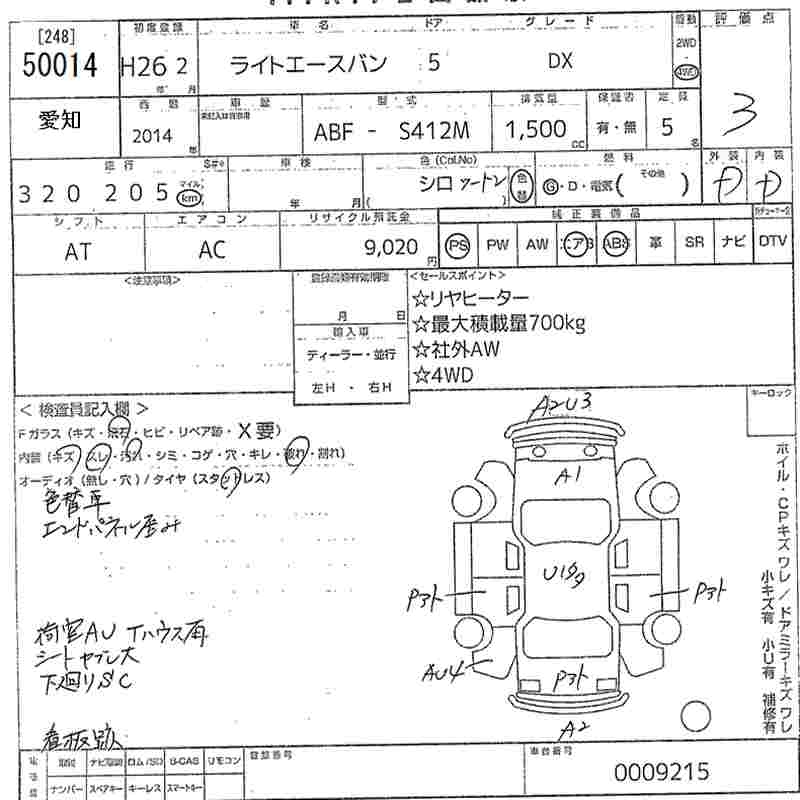 [248]
50014
初度登録
H26 2
年 月
車名 ドア グレード
ライトエースバン 5 DX
駆動
2WD
4WD
評価点
3
愛知
西暦
2014
年
車歴
型式
ABF - S412M
排気量
1,500
CC
保証書
有・無
定員
5
名
走行
320 205
マイル
km
S#
車検
年 月
色(Col.No)
シロツートン
色替
燃料
G・D・電気( その他 )
外装 内装
D D
シフト
AT
エアコン
AC
リサイクル預託金
9,020
円
純正装備品
PS PW AW エアB ABS 革 SR ナビ DTV
<注意事項>
登録書類有効期限
月 日
輸入車
ディーラー・並行
左H ・ 右H
<セールスポイント>
☆リヤヒーター
☆最大積載量700kg
☆社外AW
☆4WD
キーロック
< 検査員記入欄 >
Fガラス(キズ・飛石・ヒビ・リペア跡・X要)
内装(キズ・スレ・汚れ・シミ・コゲ・穴・キレ・破れ・割れ)
オーディオ(無し・穴)/タイヤ(スタットレス)
色替車
エンドパネル歪み
荷室AU Tハウス有
シートヤブレ大
下廻りSC
看板跡
A2U3
A1
U1
Pヨト
Pヨト
AU4
Pヨト
A2
ホイル・CPキズワレ/ドアミラーキズワレ
小キズ有 小U有 補修有
取説 ナビ取説 ロム/SD B-CAS リモコン
ナンバー スペアキー キーレス スマートキー
登録番号
車台番号
0009215